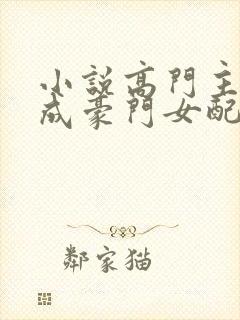 小說高門主
成豪門女配
鄰家貓